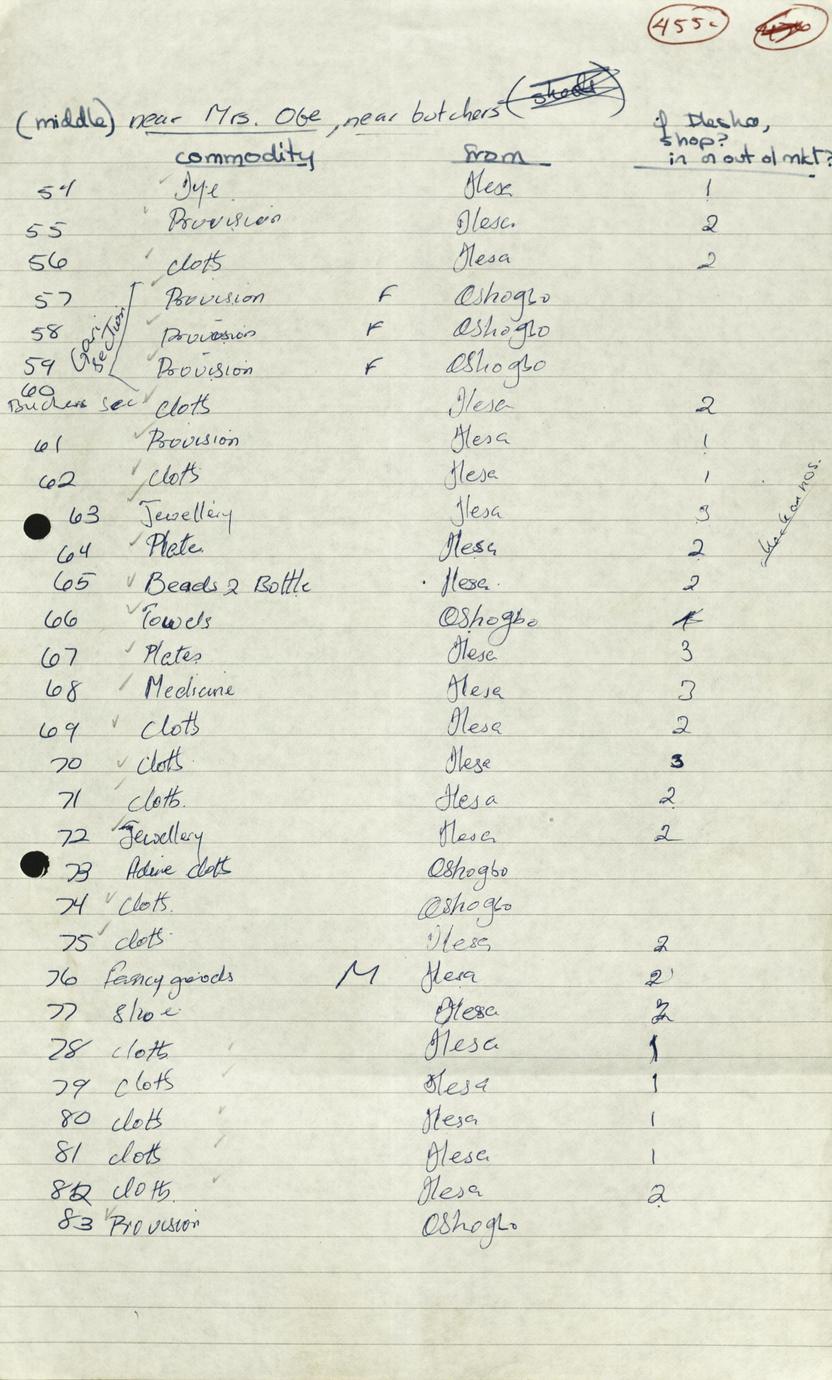 455c
(middle) near Mrs. Obe, near butchers (sheds)
if Ilesha, shop?
commodity from in or out of mkt?
54 Dye Ilesa 1
55 Provision Ilesa 2
56 cloth Ilesa 2
Gari section
57 Provision F Oshogbo
58 Provision F Oshogbo
59 Provision F Oshogbo
60
Butchers sec cloth Ilesa 2
61 Provision Ilesa 1
62 cloth Ilesa 1
63 Jewellery Ilesa 3
64 Plates Ilesa 2
65 Beads 2 Bottle Ilesa 2
66 Towels Oshogbo
67 Plates Ilesa 3
68 Medicine Ilesa 3
69 cloth Ilesa 2
70 cloth Ilesa 3
71 cloth Ilesa 2
72 Jewellery Ilesa 2
73 Adire cloth Oshogbo
74 cloth Oshogbo
75 cloth Ilesa 2
76 fancy goods M Ilesa 2
77 Shoe Ilesa 2
78 cloth Ilesa 1
79 cloth Ilesa 1
80 cloth Ilesa 1
81 cloth Ilesa 1
82 cloth Ilesa 2
83 Provision Oshogbo